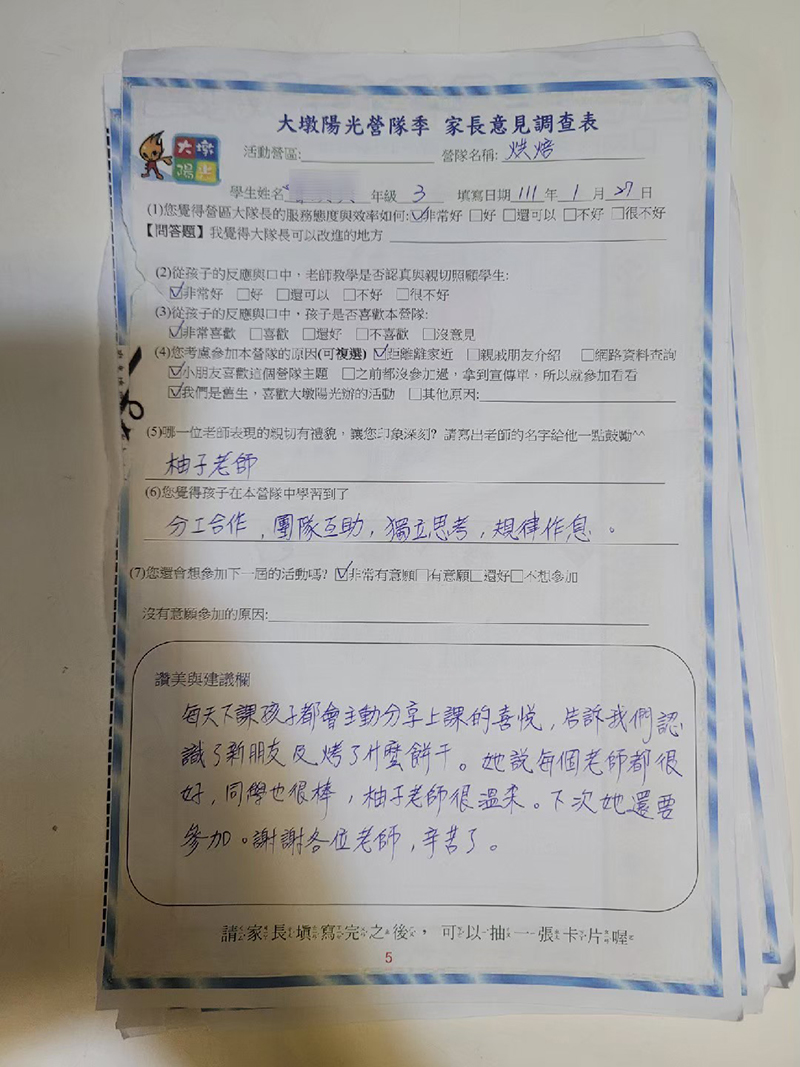 大墩陽光營隊季 家長意見調查表
大墩
陽光
活動營區: 營隊名稱: 烘焙
學生姓名 年級 3 填寫日期 111 年 1 月 27 日
(1)您覺得營區大隊長的服務態度與效率如何:☑非常好 □好 □還可以 □不好 □很不好
【問答題】我覺得大隊長可以改進的地方
(2)從孩子的反應與口中,老師教學是否認真與親切照顧學生:
☑非常好 □好 □還可以 □不好 □很不好
(3)從孩子的反應與口中,孩子是否喜歡本營隊:
☑非常喜歡 □喜歡 □還好 □不喜歡 □沒意見
(4)您考慮參加本營隊的原因(可複選) ☑距離離家近 □親戚朋友介紹 □網路資料查詢
☑小朋友喜歡這個營隊主題 □之前都沒參加過,拿到宣傳單,所以就參加看看
☑我們是舊生,喜歡大墩陽光辦的活動 □其他原因:
(5)哪一位老師表現的親切有禮貌,讓您印象深刻? 請寫出老師的名字給他一點鼓勵^^
柚子老師
(6)您覺得孩子在本營隊中學習到了
分工合作,團隊互助,獨立思考,規律作息。
(7)您還會想參加下一屆的活動嗎? ☑非常有意願□有意願□還好□不想參加
沒有意願參加的原因:
讚美與建議欄
每天下課孩子都會主動分享上課的喜悅,告訴我們認
識了新朋友及烤了什麼餅干。她說每個老師都很
好,同學也很棒,柚子老師很溫柔。下次她還要
參加。謝謝各位老師,辛苦了。
請家長填寫完之後,可以抽一張卡片喔
5